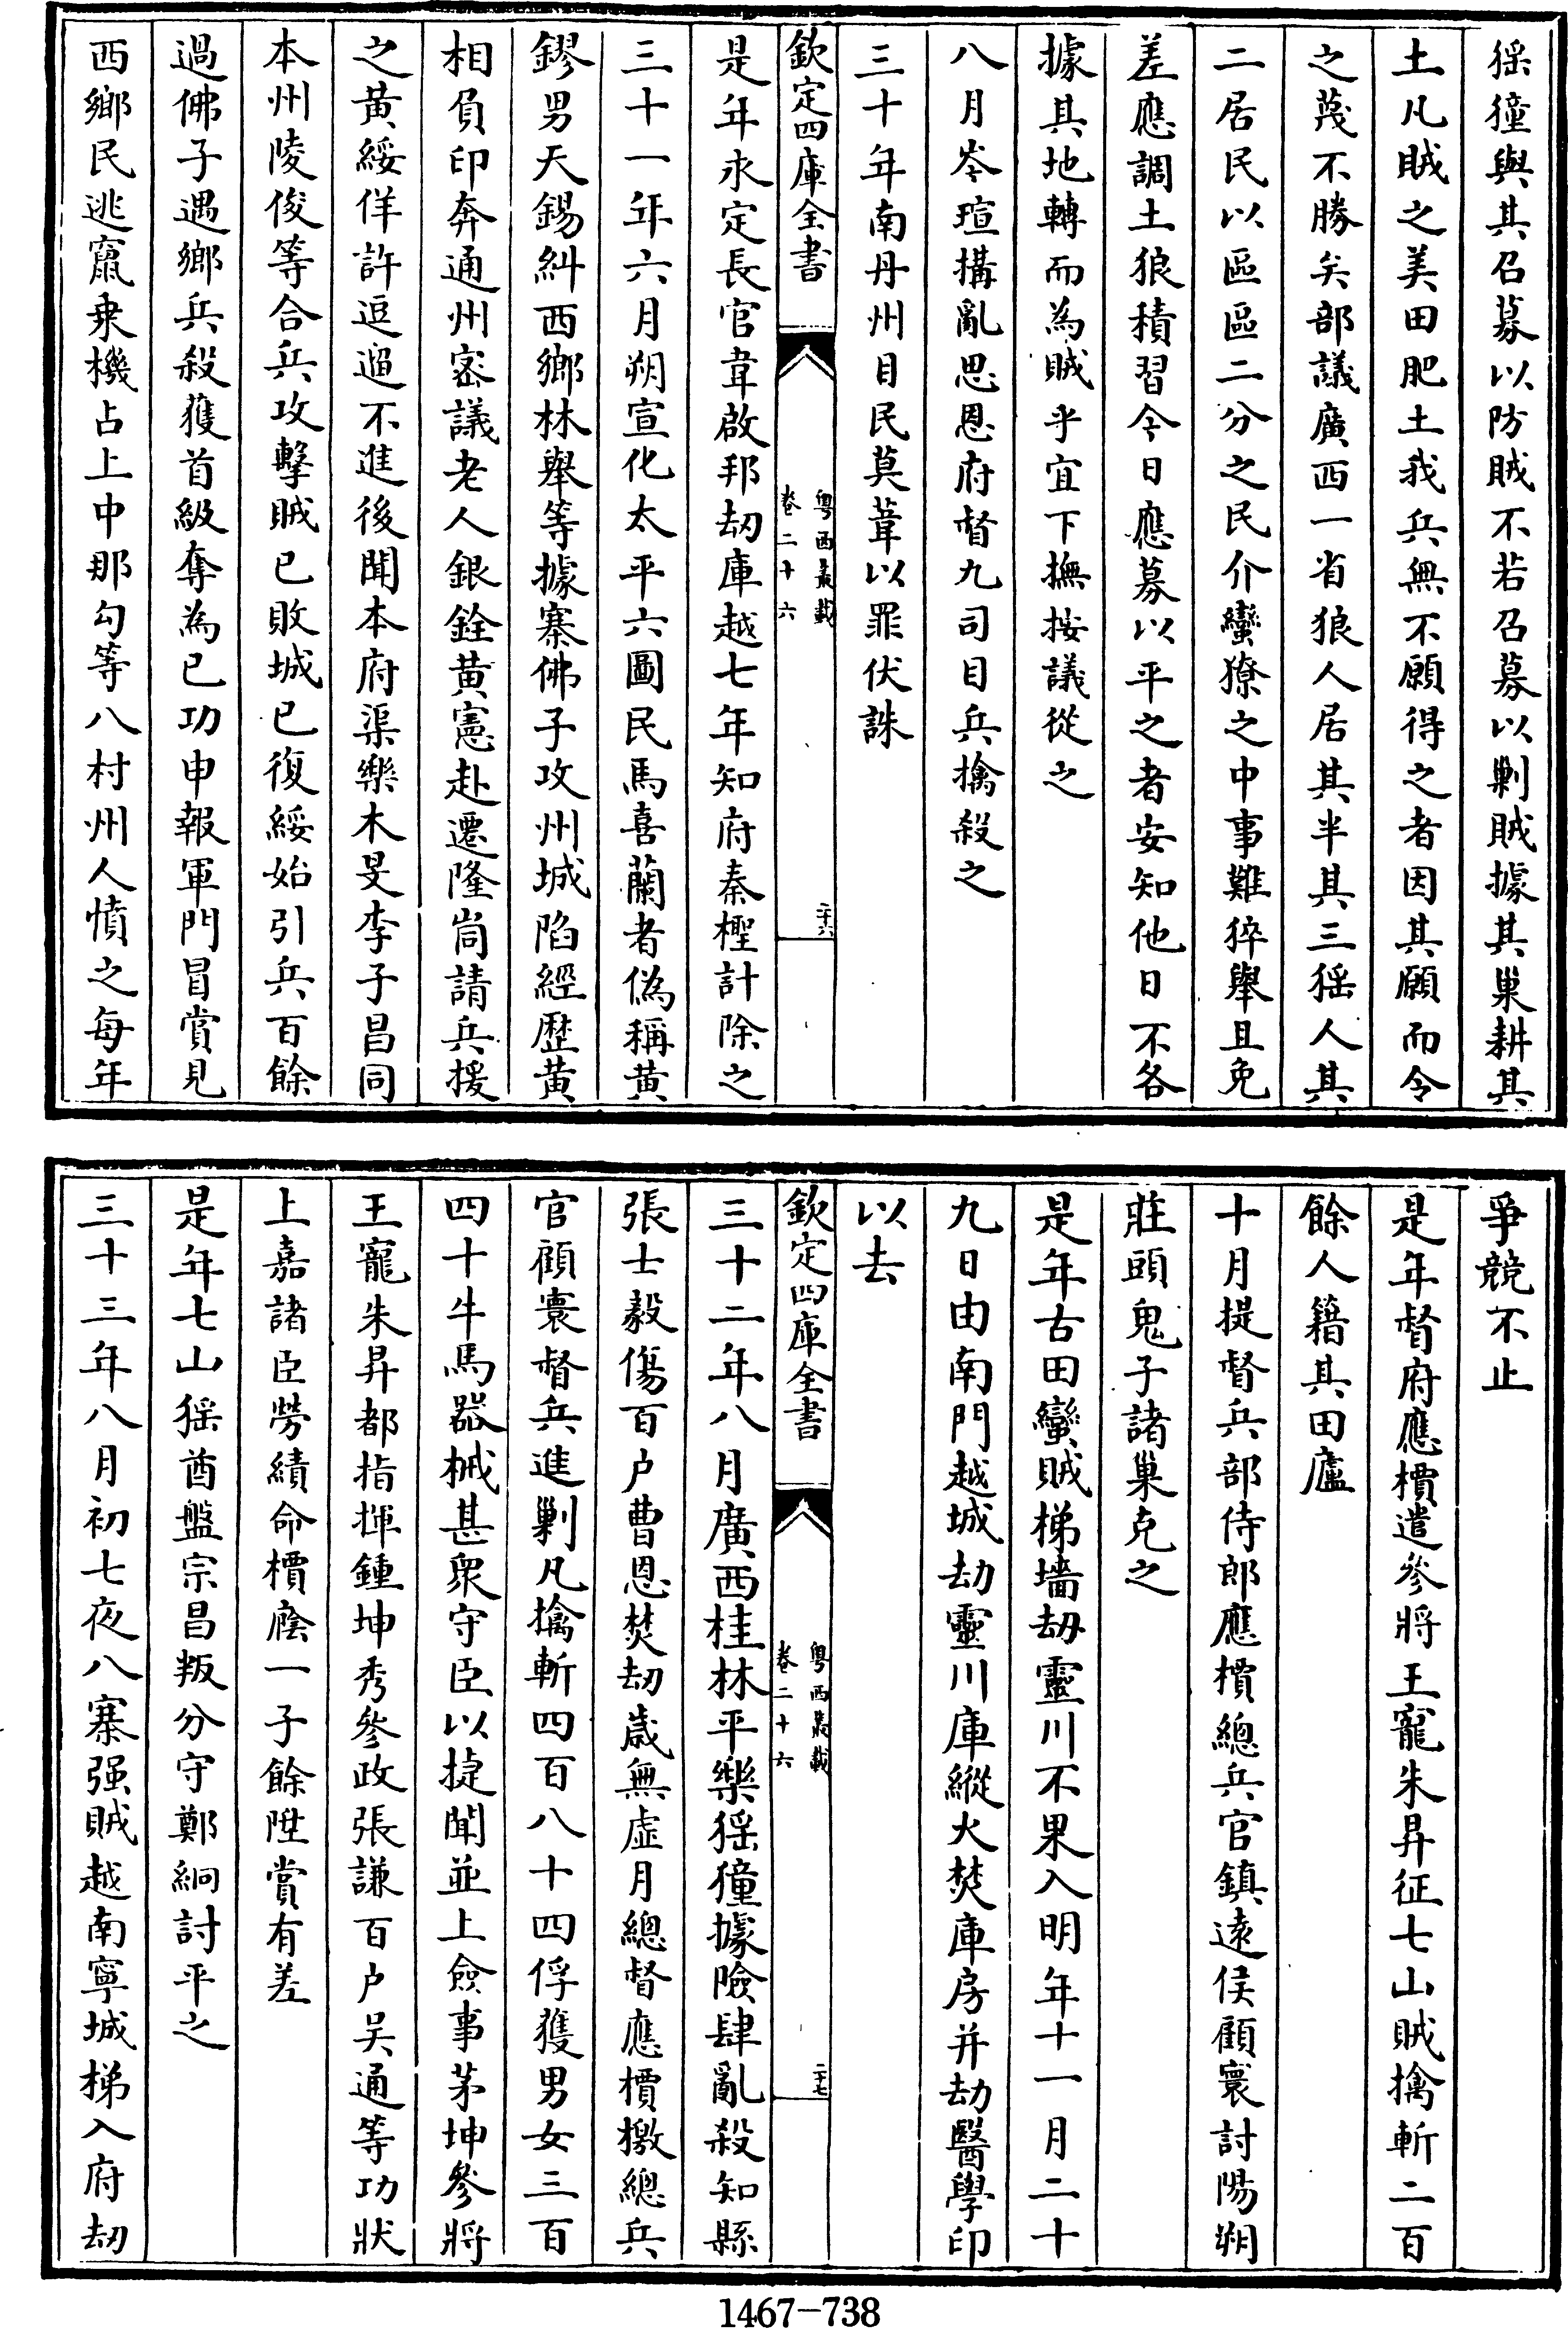 猺獞與其召募以防賊不若召募以剿賊據其巢耕其
土凡賊之美田肥土我兵無不願得之者因其願而令
之蔑不勝矣部議廣西一省狼人居其半其三猺人其
二居民以區區二分之民介蠻獠之中事難猝舉且免
差應調土狼積習今日應募以平之者安知他日不各
據其地轉而為賊乎宜下撫按議從之
八月岑瑄搆亂思恩府督九司目兵擒殺之
三十年南丹州目民莫葦以罪伏誅
欽定四庫全書
粤西叢載
卷二十六
二十六
是年永定長官韋啟邦刼庫越七年知府秦檉計除之
三十一年六月朔宣化太平六圖民馬喜蘭者偽稱黄
鏐男天錫糾西鄉林舉等據寨佛子攻州城陷經歷黄
相負印奔通州密議老人銀銓黄憲赴遷隆峝請兵援
之黄綏佯許逗遛不進後聞本府渠樂木旻李子昌同
本州陵俊等合兵攻擊賊已敗城已復綏始引兵百餘
過佛子遇鄉兵殺獲首級奪為已功申報軍門冒賞見
西鄉民逃竄乗機占上中那勾等八村州人憤之每年
爭競不止
是年督府應檟遣參將王寵朱昇征七山賊擒斬二百
餘人籍其田廬
十月提督兵部侍郎應檟總兵官鎮遠侯顧寰討陽朔
莊頭鬼子諸巢克之
是年古田蠻賊梯墻刼靈川不果入明年十一月二十
九日由南門越城劫靈川庫縱火焚庫房并劫醫學印
以去
欽定四庫全書
粤西叢載
卷二十六
二十七
三十二年八月廣西桂林平樂猺獞據險肆亂殺知縣
張士毅傷百户曹恩焚刼歲無虛月總督應檟檄總兵
官顧寰督兵進剿凡擒斬四百八十四俘獲男女三百
四十牛馬器械甚衆守臣以捷聞並上僉事茅坤參將
王寵朱昇都指揮鍾坤秀參政張謙百户吳通等功狀
上嘉諸臣勞績命檟廕一子餘陞賞有差
是年七山猺酋盤宗昌叛分守鄭絅討平之
三十三年八月初七夜八寨强賊越南寧城梯入府刼
1467-738